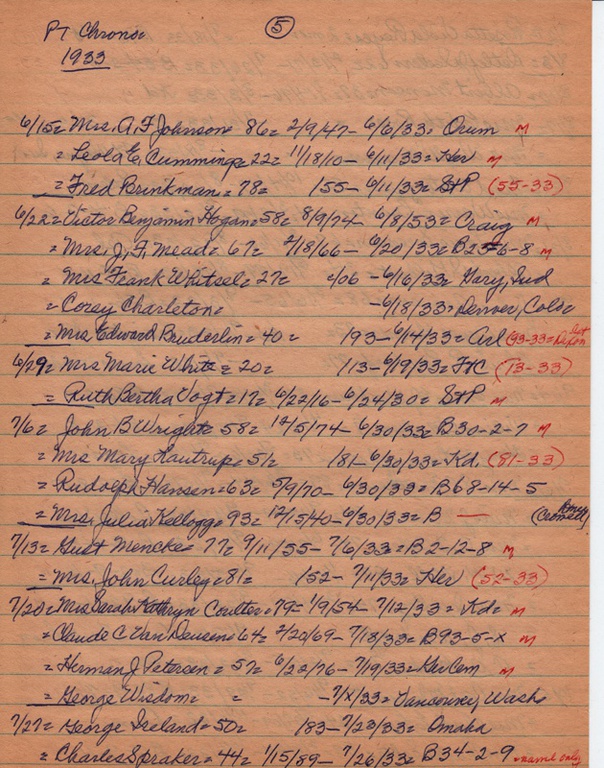 PT Chrono= (5)
1933
6/15= Mrs. A. F. Johnson= 86= 2/9/47- 6/6/33= Orum M
= Leola E. Cumming= 22= 11/18/10- 6/11/33= Her M
= Fred Brinkman= 78= 155- 6/11/33= StP (55-33)
6/22= Victor Benjamin Hogan= 58= 8/9/74- 6/8/53= Craig M
= Mrs. J. F. Mead= 67= 2/18/66- 6/20/33= B25-6-8 M
= Mrs Frank Whitsel= 27= /06 - 6/16/33= Gary, Ind
= Corey Charleton= -6/18/33= Denver, Colo=
= Mrs Edward Bruderlin= 40= 193- 6/14/33= Arl (93-33=
6/29= Mrs Marie White= 20= 113- 6/19/33= FTC (13-33)
= Ruth Bertha Vogt= 17= 6/22/16- 6/24/30= StP M
7/6= John B Wright= 58= 12/5/74- 6/30/33= B30-2-7 M
= Mrs Mary Hautrup= 51= 181- 6/30/33= Kd. (81-33)
= Rudolph Hansen= 63= 5/9/70- 6/30/33= B68-14-5
= Mrs. Julia Kellogg= 93= 12/15/40- 6/30/33= B —
7/13= Gust Mencke= 77= 9/11/55- 7/6/33= B2-12-8 M
= Mrs. John Curley= 81= 152- 7/11/33= Her (52-33)
7/20= Mrs Sarah Kathryn Coulter= 79= 1/9/54- 7/12/33= Kd= M
= Claude C Van Deusen= 64= 2/20/69- 7/18/33= B93-5-X M
= Herman J Petersen= 57= 6/22/76- 7/19/33= GerCem M
= George Wisdom= = -7/X/33= Vancouver, Wash=
7/27= George Ireland= 50= 183- 7/23/33= Omaha
= Charles Spraker= 44= 1/15/89- 7/26/33= B34-2-9 = name only